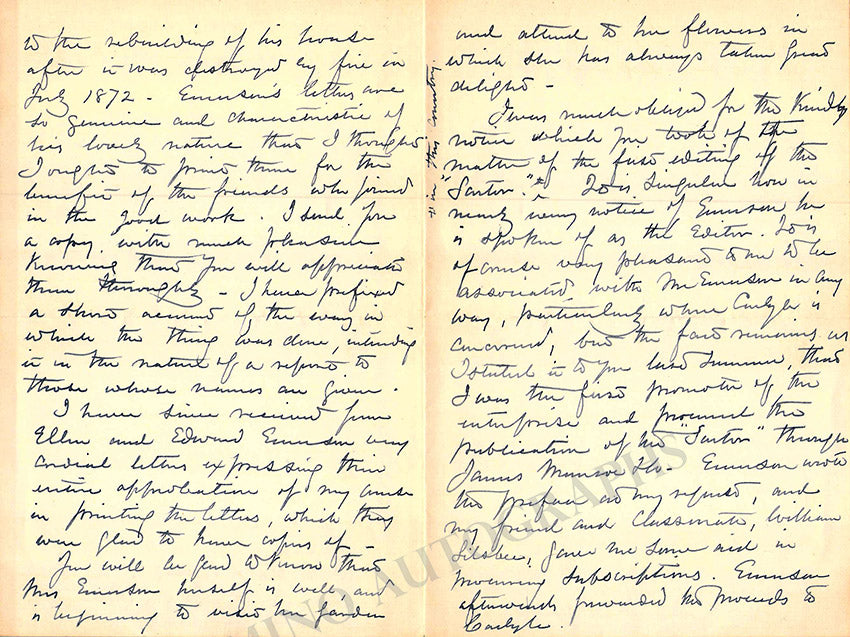 to the rebuilding of his house
after it was destroyed by fire in
July 1872 - Emerson's letters are
so genuine and characteristic of
his lovely nature that I thought
I ought to print them for the
benefit of the friends who joined
in the good work. I send you
a copy with much pleasure
knowing that you will appreciate
them thoroughly - I have prefixed
a short account of the way in
which the thing was done, intending
it in the nature of a report to
those whose names are given.
I have since received from
Ellen and Edward Emerson very
cordial letters expressing their
entire approbation of my course
in printing the letters, which they
were glad to have copies of -
You will be glad to know that
Mrs Emerson herself is well and
is beginning to visit her garden
and attend to her flowers in
which she has always taken great
delight -
I was much obliged for the kindly
notice which you took of the
matter of the first editing of the
"Sartor." It is singular how in
nearly every notice of Emerson he
is spoken of as the Editor. It is
of course very pleasant to me to be
associated with Mr Emerson in any
way, particularly where Carlyle is
concerned, but the fact remains as
I stated it to you last summer, that
I was the first promoter of the
enterprise and procured the
publication of the "Sartor" through
James Munroe & Co - Emerson wrote
the preface at my request, and
my friend and classmate, William
Silsbee, gave me some aid in
procuring subscriptions. Emerson
afterwards forwarded the proceeds to
Carlyle.
in this country.
MINO AUTOGRAPHS